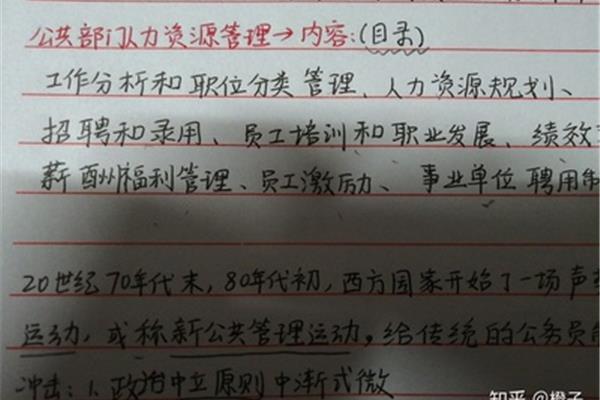 公共部门人力资源管理→内容:(目录)
工作分析和职位分类管理、人力资源规划、
招聘和录用、员工培训和职业发展、绩效
薪酬福利管理、员工激励、事业单位聘用制
20世纪70年代末,80年代初,西方国家开始了一场声
运动,或称新公共管理运动,给传统的公务员
冲击:1.政治中立原则中渐式微
知乎 @橙子